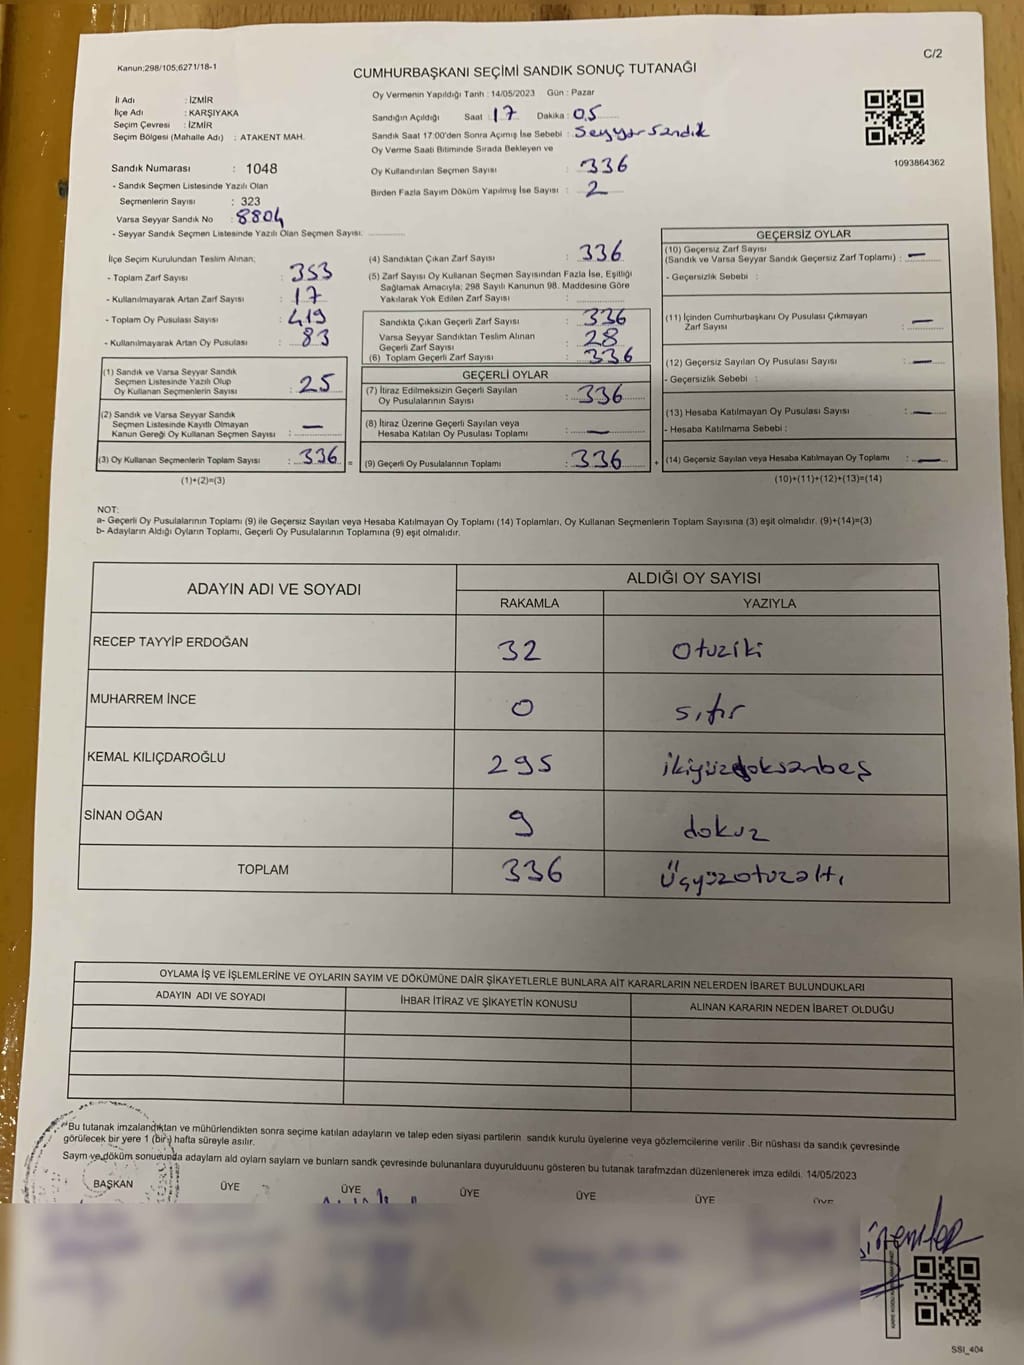 Kanun;298/105;6271/18-1
C/2
CUMHURBAŞKANI SEÇİMİ SANDIK SONUÇ TUTANAĞI
İl Adı : İZMİR
İlçe Adı : KARŞIYAKA
Seçim Çevresi : İZMİR
Seçim Bölgesi (Mahalle Adı) : ATAKENT MAH.
Oy Vermenin Yapıldığı Tarih : 14/05/2023 Gün : Pazar
Sandığın Açıldığı Saat : 17 Dakika : 05
Sandık Saat 17:00'den Sonra Açımış İse Sebebi : Seyyar Sandık
Oy Verme Saati Bitiminde Sırada Bekleyen ve
Oy Kullandırılan Seçmen Sayısı : 336
Birden Fazla Sayım Döküm Yapılmış İse Sayısı : 2
1093864362
Sandık Numarası : 1048
- Sandık Seçmen Listesinde Yazılı Olan
Seçmenlerin Sayısı : 323
Varsa Seyyar Sandık No : 8804
- Seyyar Sandık Seçmen Listesinde Yazılı Olan Seçmen Sayısı:
İlçe Seçim Kurulundan Teslim Alınan;
- Toplam Zarf Sayısı : 353
- Kullanılmayarak Artan Zarf Sayısı : 17
- Toplam Oy Pusulası Sayısı : 419
- Kullanılmayarak Artan Oy Pusulası : 83
(1) Sandık ve Varsa Seyyar Sandık
Seçmen Listesinde Yazılı Olup
Oy Kullanan Seçmenlerin Sayısı : 25
(2) Sandık ve Varsa Seyyar Sandık
Seçmen Listesinde Kayıtlı Olmayan
Kanun Gereği Oy Kullanan Seçmen Sayısı : —
(3) Oy Kullanan Seçmenlerin Toplam Sayısı : 336 =
(1)+(2)=(3)
(4) Sandıktan Çıkan Zarf Sayısı : 336
(5) Zarf Sayısı Oy Kullanan Seçmen Sayısından Fazla İse, Eşitliği
Sağlamak Amacıyla; 298 Sayılı Kanunun 98. Maddesine Göre
Yakılarak Yok Edilen Zarf Sayısı :
Sandıkta Çıkan Geçerli Zarf Sayısı : 336
Varsa Seyyar Sandıktan Teslim Alınan
Geçerli Zarf Sayısı : 28
(6) Toplam Geçerli Zarf Sayısı : 336
GEÇERLİ OYLAR
(7) İtiraz Edilmeksizin Geçerli Sayılan
Oy Pusulalarının Sayısı : 336
(8) İtiraz Üzerine Geçerli Sayılan veya
Hesaba Katılan Oy Pusulası Toplamı : —
(9) Geçerli Oy Pusulalarının Toplamı : 336 +
GEÇERSİZ OYLAR
(10) Geçersiz Zarf Sayısı
(Sandık ve Varsa Seyyar Sandık Geçersiz Zarf Toplamı) : —
- Geçersizlik Sebebi :
(11) İçinden Cumhurbaşkanı Oy Pusulası Çıkmayan
Zarf Sayısı : —
(12) Geçersiz Sayılan Oy Pusulası Sayısı : —
- Geçersizlik Sebebi :
(13) Hesaba Katılmayan Oy Pusulası Sayısı : —
- Hesaba Katılmama Sebebi :
(14) Geçersiz Sayılan veya Hesaba Katılmayan Oy Toplamı : —
(10)+(11)+(12)+(13)=(14)
NOT:
a- Geçerli Oy Pusulalarının Toplamı (9) ile Geçersiz Sayılan veya Hesaba Katılmayan Oy Toplamı (14) Toplamları, Oy Kullanan Seçmenlerin Toplam Sayısına (3) eşit olmalıdır. (9)+(14)=(3)
b- Adayların Aldığı Oyların Toplamı, Geçerli Oy Pusulalarının Toplamına (9) eşit olmalıdır.
ADAYIN ADI VE SOYADI ALDIĞI OY SAYISI
RAKAMLA YAZIYLA
RECEP TAYYİP ERDOĞAN 32 Otuziki
MUHARREM İNCE 0 sıfır
KEMAL KILIÇDAROĞLU 295 ikiyüzdoksanbeş
SİNAN OĞAN 9 dokuz
TOPLAM 336 Üçyüzotuzaltı
OYLAMA İŞ VE İŞLEMLERİNE VE OYLARIN SAYIM VE DÖKÜMÜNE DAİR ŞİKAYETLERLE BUNLARA AİT KARARLARIN NELERDEN İBARET BULUNDUKLARI
ADAYIN ADI VE SOYADI İHBAR İTİRAZ VE ŞİKAYETİN KONUSU ALINAN KARARIN NEDEN İBARET OLDUĞU
Bu tutanak imzalandıktan ve mühürlendikten sonra seçime katılan adayların ve talep eden siyasi partilerin sandık kurulu üyelerine veya gözlemcilerine verilir .Bir nüshası da sandık çevresinde
görülecek bir yere 1 (bir) hafta süreyle asılır.
Sayım ve döküm sonucunda adayların ald oyların saylarn ve bunlarn sandk çevresinde bulunanlara duyurulduunu gösteren bu tutanak tarafmzdan düzenlenerek imza edildi. 14/05/2023
BAŞKAN ÜYE ÜYE ÜYE ÜYE ÜYE ÜYE
SSI_404